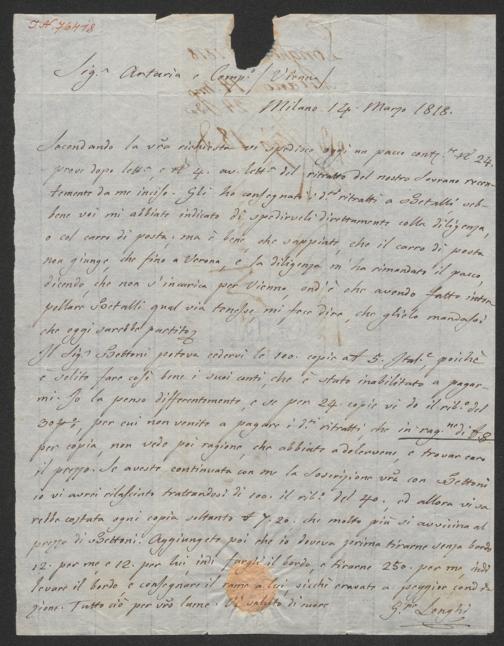 I.N. 76478
Sig.ri Artaria e Comp.o / Vienna /
Milano 14. Marzo 1818.
Secondando la vr̃a richiesta vi spedisco oggi un pacco cont.te N.o 24.
prove dopo lett.a e N.o 4. av. lett.a del ritratto del nostro Sovrano recen-
temente da me inciso. Gli ho consegnati i d.i ritratti a Betalli seb-
bene voi mi abbiate indicato di spedirveli direttamente colla diligenza,
o col carro di posta, ma è bene, che sappiate, che il carro di posta
non giunge, che fino a Verona, e la diligenza m'ha rimandato il pacco
dicendo, che non s'incarica per Vienna, ond'è che avendo fatto inter-
pellare Betalli qual via tenesse, mi fece dire, che glielo mandassi
che oggi sarebbe partito.
Il Sig.r Bettoni poteva cedervi le 100. copie a f 5. Ital.e poichè
è solito fare così bene i suoi conti, che è stato inabilitato a pagar-
mi. Io la penso differentemente, e se per 24. copie vi do il rib.o del
30 p %, per cui non venite a pagare i d.i ritratti, che in rag.ne di f 8
per copia, non vedo poi ragione, che abbiate a dolervene, e trovar caro
il prezzo. Se aveste continuata con me la Soscrizione vr̃a con Bettoni
io vi avrei rilasciato trattandosi di 100. il rib.o del 40., ed allora vi sa-
rebbe costata ogni copia soltanto f 7. 20. che molto più si avvicina al
prezzo di Bettoni. Aggiungete poi che io doveva prima tirarne senza bordo
12. per me e 12. per lui, indi fargli il bordo, e tirarne 250. per me, indi
levare il bordo e consegnare il rame a lui, sicchè eravate a peggior condi-
zione. Tutto ciò per vr̃o lume. Vi saluto di cuore
G.pe Longhi